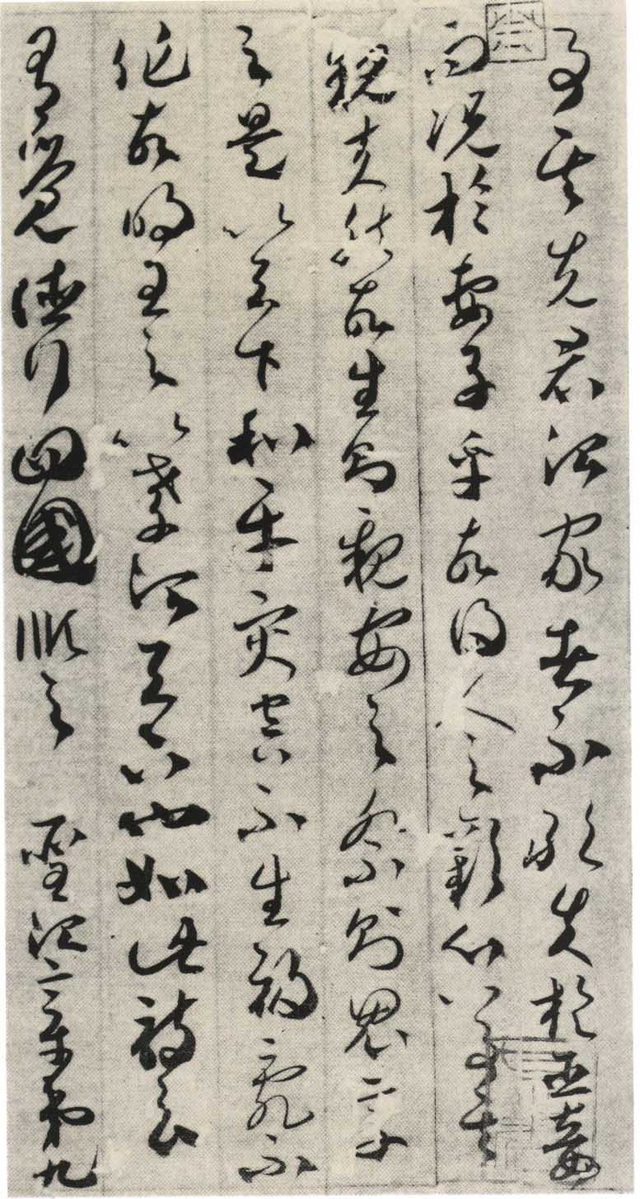 事其先君治家者不敢失於臣妾
而況於妻子乎故得人之歡心以事其
親夫然故生則親安之祭則鬼享
之是以天下和平災害不生禍亂不
作故明王之以孝治天下也如此詩云
有覺德行四國順之　聖治章第九